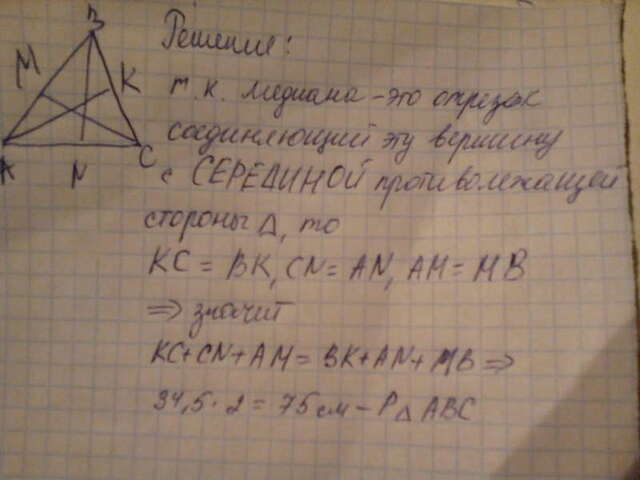 Решение:
т.к. медиана - это отрезок
соединяющий эту вершину
с СЕРЕДИНОЙ противолежащей
стороны Δ, то
KC = BK, CN = AN, AM = MB
⇒ значит
KC+CN+AM = BK+AN+MB ⇒
34,5·2 = 75 см - P Δ ABC
B
M
K
A
N
C